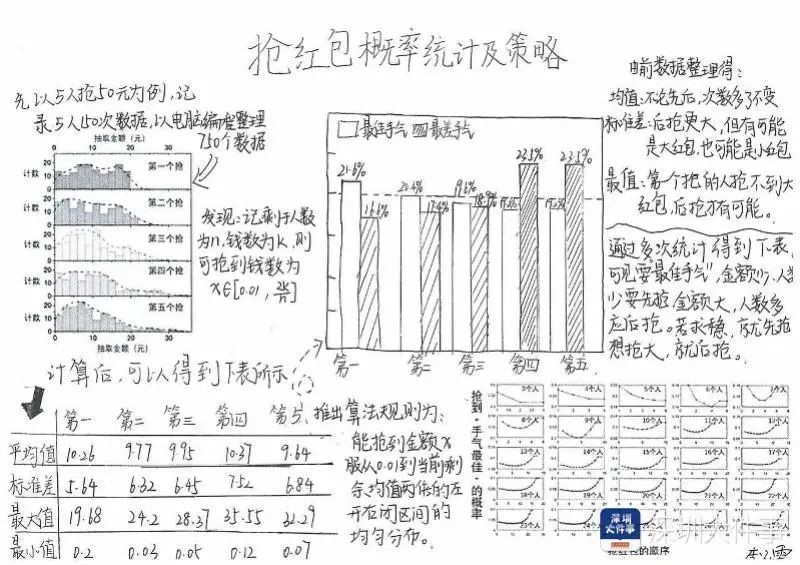 抢红包概率统计及策略
先以5人抢50元为例,记
录5人150次数据,以电脑编程整理
750个数据
抽取金额(元)
0 10 20 30
计数
第一个抢
计数
第二个抢
计数
第三个抢
计数
第四个抢
计数
第五个抢
0 10 20 30
抽取金额(元)
发现:记剩于人数
为n,钱数为k,则
可抢到钱数为
x∈[0.01, 2k/n]
最佳手气 最差手气
21.6% 16.6% 20.4% 17.4% 19.6% 18.9% 23.5% 23.5%
第一 第二 第三 第四 第五
由前数据整理得:
均值:不论先后,次数多了不变
标准差:后抢更大,但有可能
是大红包,也可能是小红包
最值:第一个抢的人抢不到大
红包,后抢才有可能。
通过多次统计得到下表,
可见要“最佳手气”,金额少、人数
少要先抢,金额大,人数多
应后抢。若求稳,就先抢
想抢大,就后抢。
计算后,可以得到下表所示
第一 第二 第三 第四 第五
平均值 10.26 9.77 9.95 10.37 9.64
标准差 5.64 6.32 6.45 7.52 6.84
最大值 19.68 24.2 28.37 35.55 32.29
最小值 0.2 0.03 0.05 0.12 0.07
推出算法规则为:
能抢到金额x
服从0.01到当前剩
余均值两倍的左
开右闭区间的
均匀分布。
抢到“手气最佳”的概率
3个人 4个人 5个人 6个人 7个人
8个人 9个人 10个人 11个人 12个人
13个人 14个人 15个人 16个人 17个人
18个人 19个人 20个人 21个人 22个人
23个人 24个人
抢红包的顺序
深圳
大件事
深圳大件事